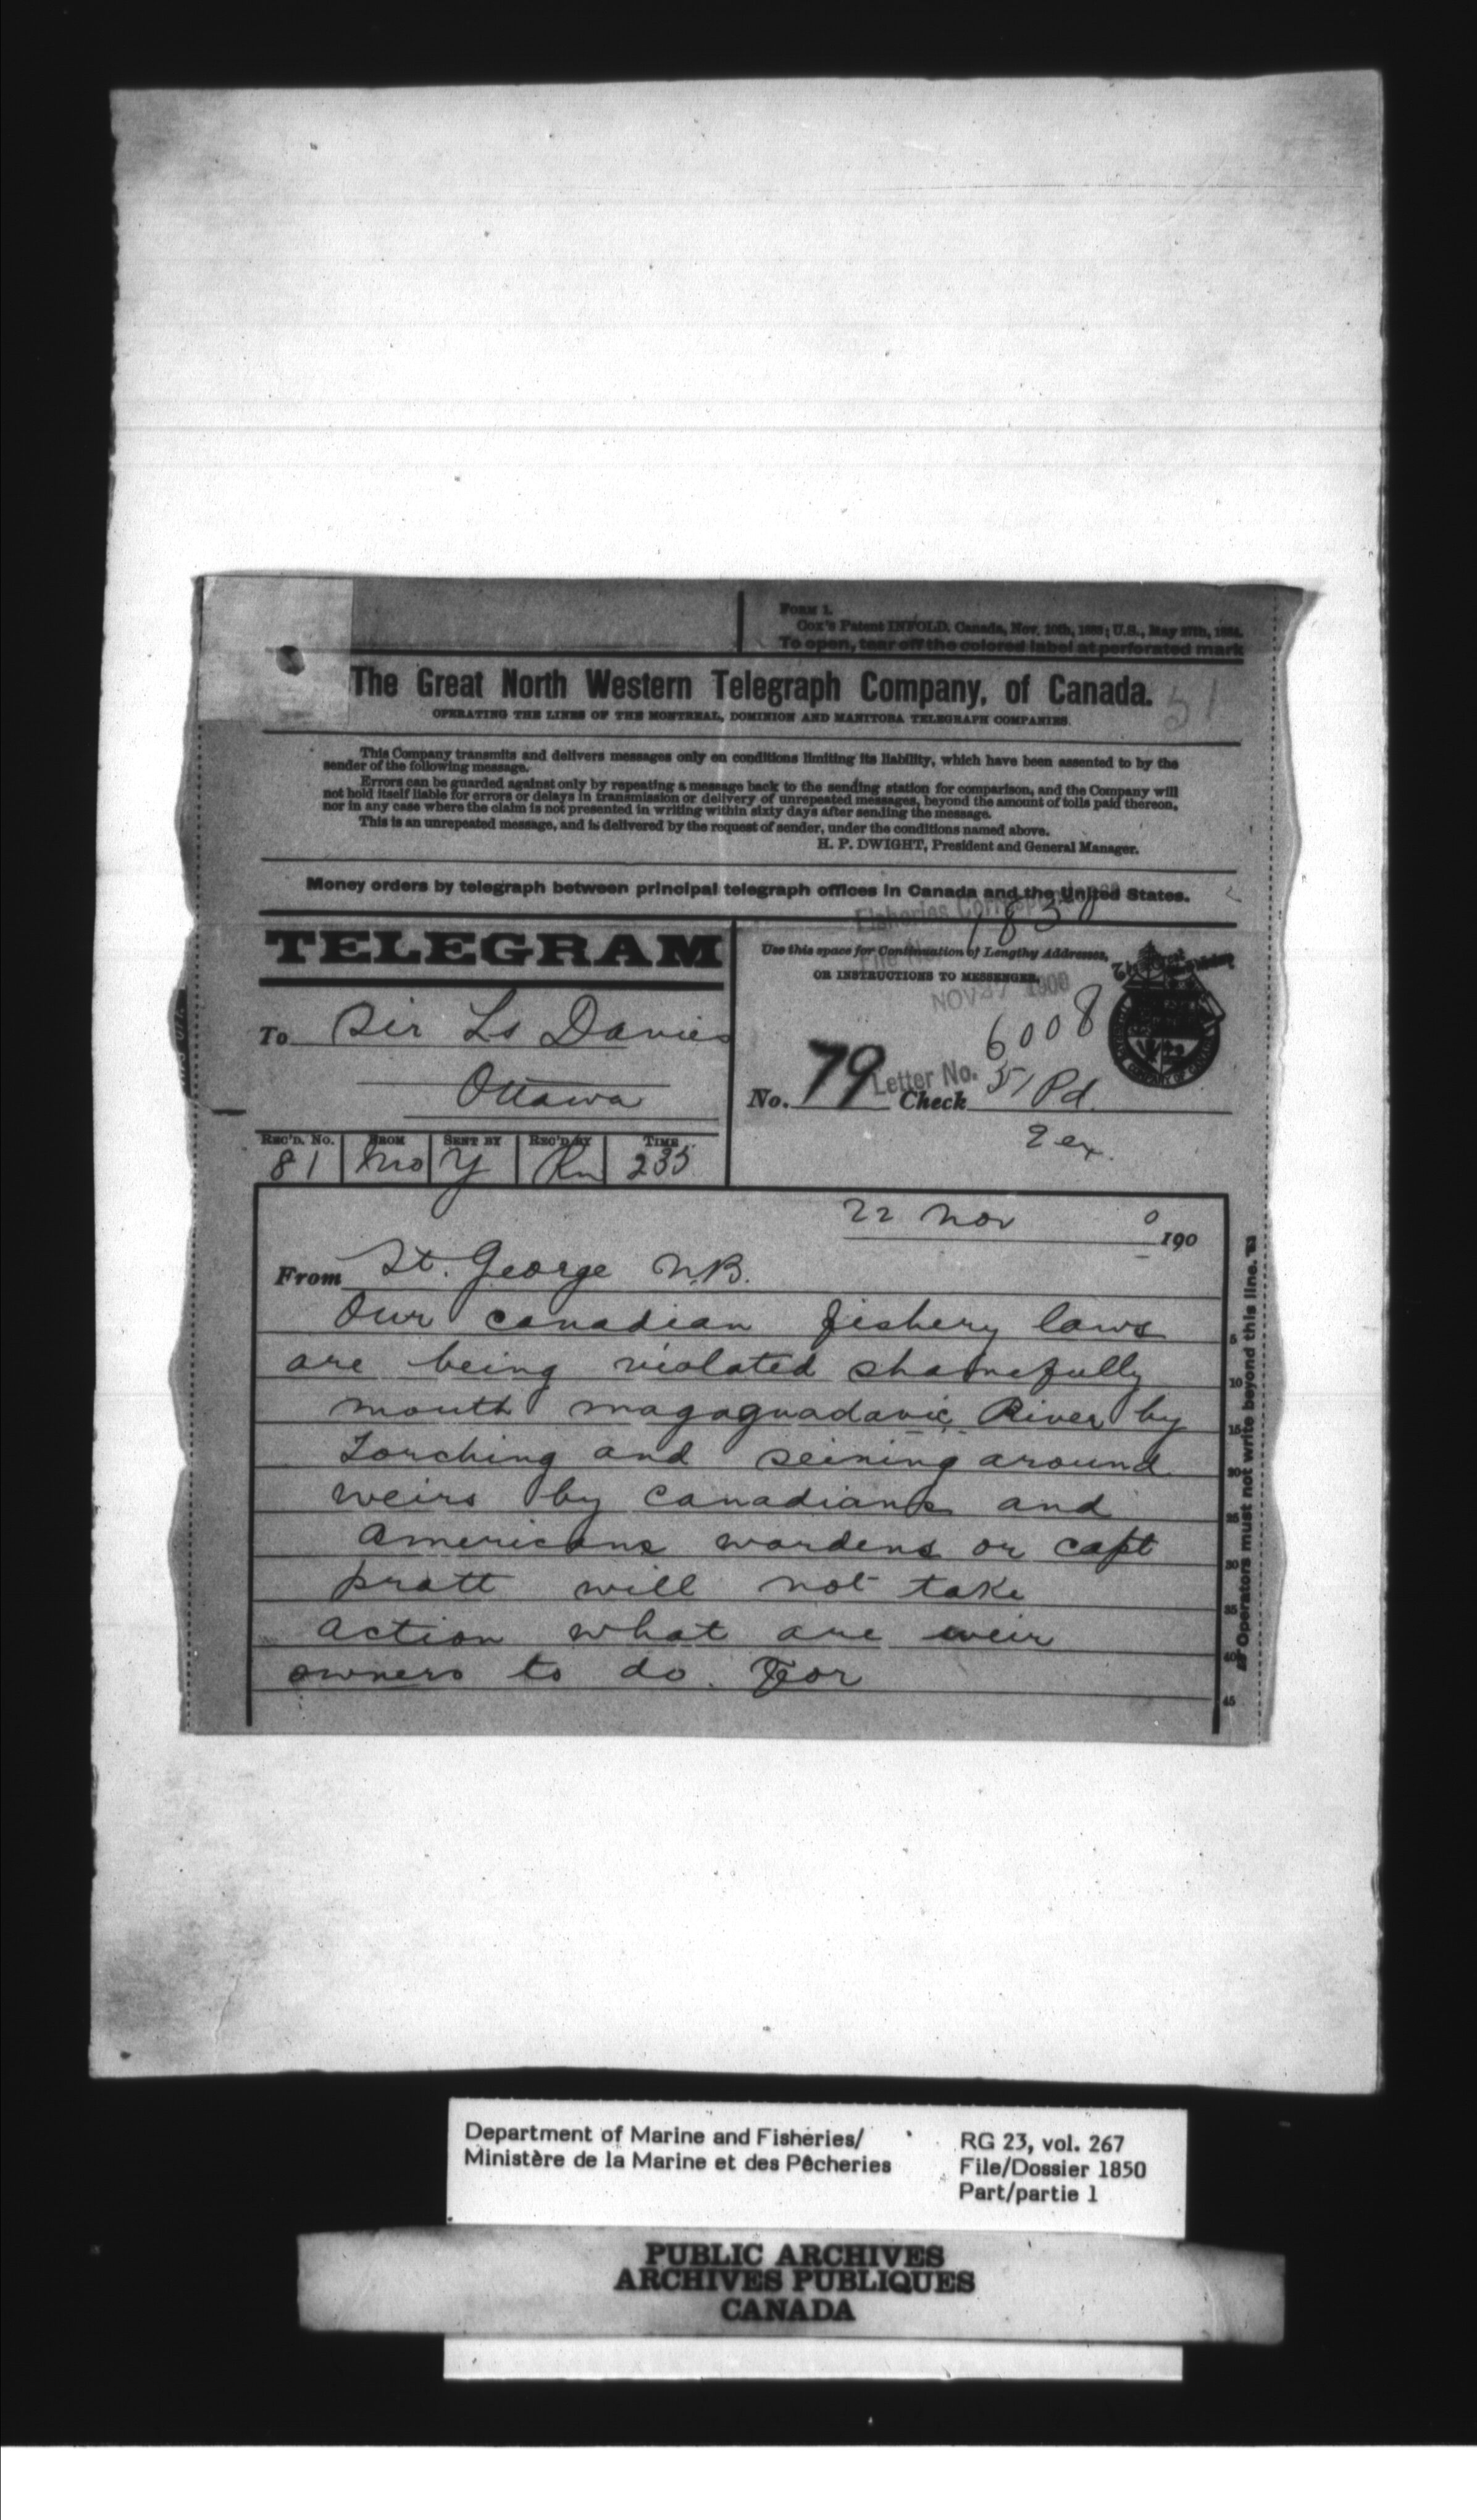 FORM 1.
Cox's Patent INFOLD. Canada, Nov. 10th, 1883; U.S., May 27th, 1884.
To open, tear off the colored label at perforated mark
The Great North Western Telegraph Company, of Canada.
51
OPERATING THE LINES OF THE MONTREAL, DOMINION AND MANITOBA TELEGRAPH COMPANIES.
This Company transmits and delivers messages only on conditions limiting its liability, which have been assented to by the
sender of the following message.
Errors can be guarded against only by repeating a message back to the sending station for comparison, and the Company will
not hold itself liable for errors or delays in transmission or delivery of unrepeated messages, beyond the amount of tolls paid thereon,
nor in any case where the claim is not presented in writing within sixty days after sending the message.
This is an unrepeated message, and is delivered by the request of sender, under the conditions named above.
H. P. DWIGHT, President and General Manager.
Money orders by telegraph between principal telegraph offices in Canada and the United States.
Fisheries
1850
TELEGRAM
Use this space for Continuation of Lengthy Addresses,
OR INSTRUCTIONS TO MESSENGER.
NOV 27 1900
To Sir Ls Davies
Ottawa
6008
Letter No.
No. 79 Check 51 Pd.
2 ex.
REC'D. No. FROM SENT BY REC'D BY TIME
81 Mo Y Rn 235
22 Nov 0 190
From St. George N.B.
Our canadian fishery laws
are being violated shamefully
mouth magaguadavic River by
Torching and seining around
weirs by canadians and
americans wardens or capt
pratt will not take
action what are weir
owners to do. For
5
10
15
20
25
30
35
40
45
Operators must not write beyond this line.
Department of Marine and Fisheries/
Ministère de la Marine et des Pêcheries
RG 23, vol. 267
File/Dossier 1850
Part/partie 1
PUBLIC ARCHIVES
ARCHIVES PUBLIQUES
CANADA